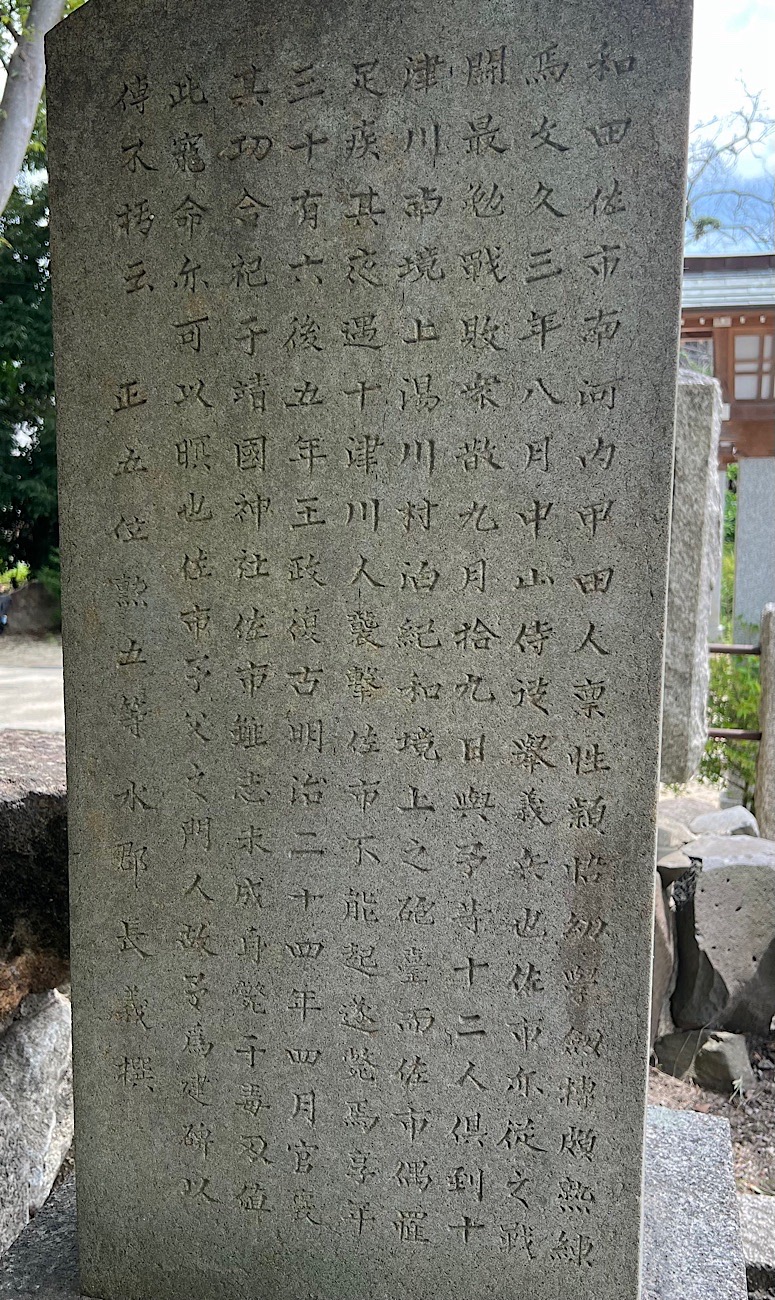 和田佐市南河内甲田人稟性頴悟幼學劔棒頗熟練
焉文久三年八月中山侍從擧義兵也佐市亦從之戰
鬪最勉戰敗衆散九月拾九日與予等十二人倶到十
津川両境上湯川村泊紀和境上之砲臺而佐市偶罹
足疾其夜遇十津川人襲撃佐市不能起遂斃焉享年
三十有六後五年王政復古明治二十四年四月官褒
其功合祀于靖國神社佐市雖志未成身斃于毒刃値
此寵命亦可以瞑也佐市予父之門人故予爲建碑以
傳不朽云　正五位勲五等水郡長義撰